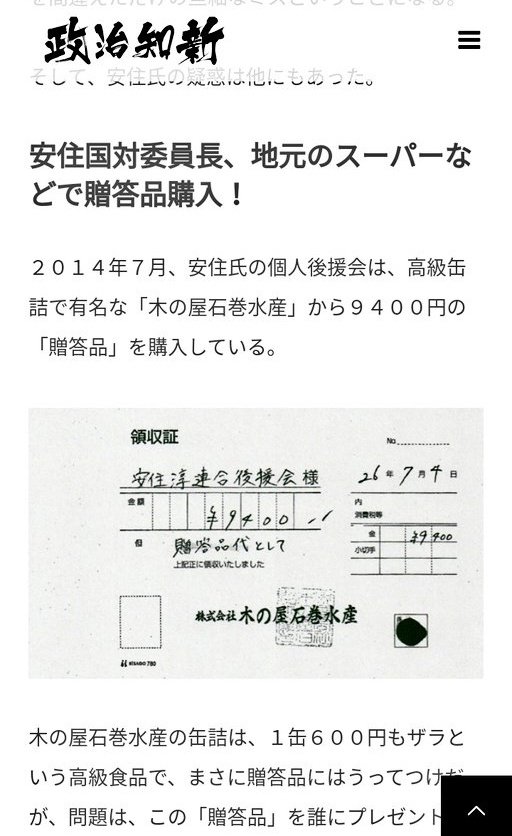 を間違えただけの些細なミスということになる。
政治知新
そして、安住氏の疑惑は他にもあった。
安住国対委員長、地元のスーパーな
どで贈答品購入！
２０１４年７月、安住氏の個人後援会は、高級缶
詰で有名な「木の屋石巻水産」から９４００円の
「贈答品」を購入している。
領収証
No.
安住淳連合後援会様
26年7月4日
金額
¥9400
内
消費税等
金 ¥9400
小切手
但 贈答品代として
上記正に領収いたしました
株式会社木の屋石巻水産
HISAGO 780
木の屋石巻水産の缶詰は、１缶６００円もザラと
いう高級食品で、まさに贈答品にはうってつけだ
が、問題は、この「贈答品」を誰にプレゼント